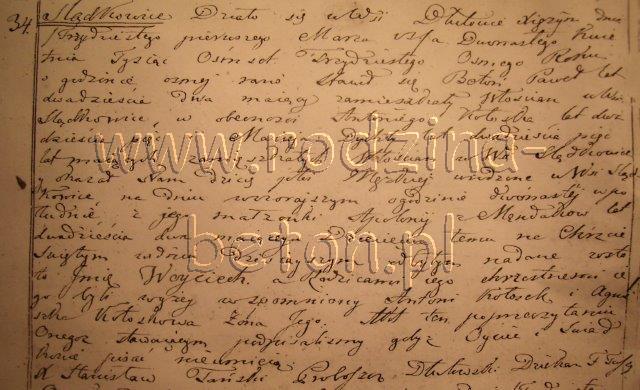 34. Slądkowice Działo się w Wsi Dłutowie dnia
Trzydziestego pierwszego Marca v.s.f. Dwunastego Kwie
tnia Tysiąc Osmset Trzydziestego Osmego Roku
o godzinie osmej rano Stawił się Betoń Paweł lat
dwadzieścia dwa mający zamieszkały Włościan w Wsi
Slądkowice, w obecności Antoniego Kołoska lat dwa
dzieścia Macieja lat dwadzieścia pięć
lat mających zamieszkałych Włościan w Wsi Slądkowice
y okazał Nam dziecię płci Męzkiej urodzone w Wsi Sląd
kowice na dniu wczorajszym o godzinie dwunastej w po
łudnie z jego małżonki Apolonij z Mendałków lat
dwadzieścia dwa mającej Dziecięciu temu na Chrzcie
Swiętym w dniu dzisiejszym odbytym nadane zosta
ło Imię Woyciech, a Rodzicami jego chrzestnemi
go byli wyżey wspomniony Antoni Kołosek i Agni
szka Kołoskowa Żona Jego. Akt ten po przeczytaniu
Onego stawającym podpisaliśmy gdyż Oyciec i Swiad
kowie pisać nieumieją
X Stanisław Proboszcz Dłutowski Dziekan
www.rodzina-
beton.pl